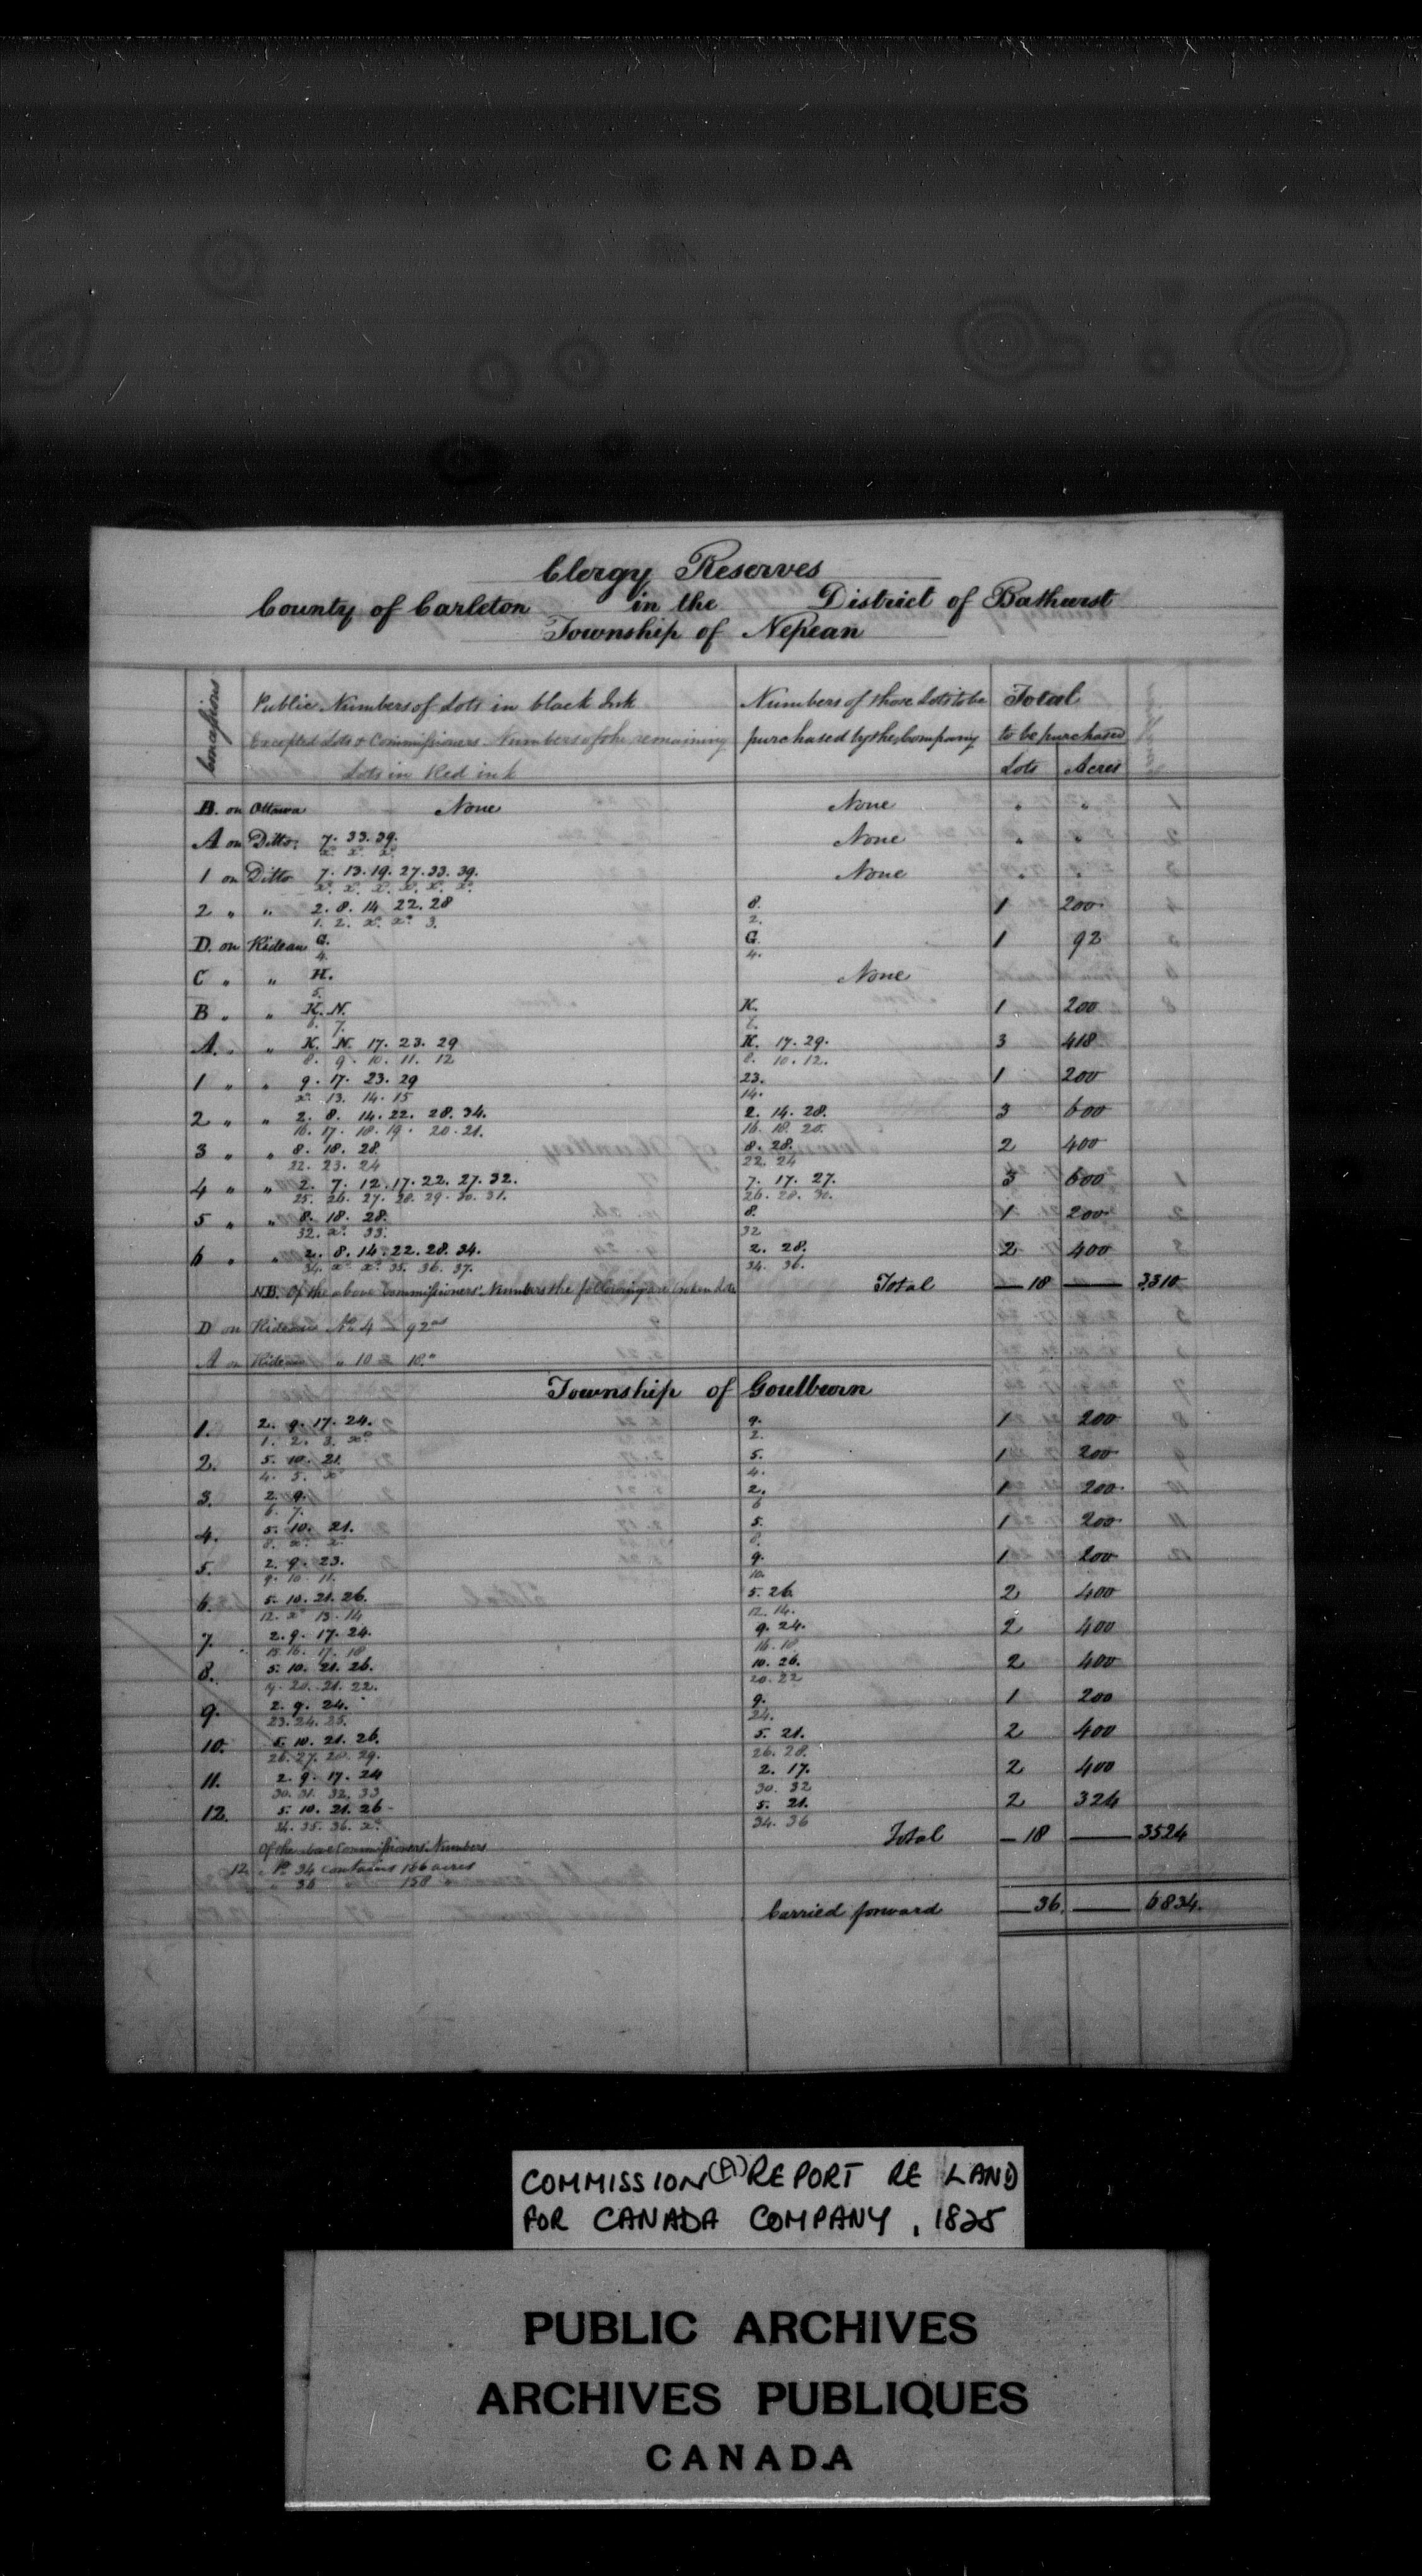 Clergy Reserves
County of Carleton in the District of Bathurst
Township of Nepean
Concessions
Public Numbers of Lots in black Ink Numbers of those Lots to be Total
Excepted Lots & Commissioners Numbers of the remaining purchased by the Company to be purchased
Lots in Red ink Lots Acres
B. on Ottawa None None " "
A on Ditto. 7. 33. 39. None " "
x. x. x.
1 on Ditto 7. 13. 19. 27. 33. 39. None " "
x. x. x. x. x. x.
2 " " 2. 8. 14 22. 28 8. 1 200
1. 2. x. x. 3. 2.
D. on Rideau G. G. 1 92
4. 4.
C " " H. None
5.
B " " K. N. K. 1 200
6. 7. 6.
A. " " K. N. 17. 23. 29 K. 17. 29. 3 418
8. 9. 10. 11. 12 8. 10. 12.
1 " " 9. 17. 23. 29 23. 1 200
x. 13. 14. 15 14.
2 " " 2. 8. 14. 22. 28. 34. 2. 14. 28. 3 600
16. 17. 18. 19. 20. 21. 16. 18. 20.
3 " " 8. 18. 28. 8. 28. 2 400
22. 23. 24 22. 24
4 " " 2. 7. 12. 17. 22. 27. 32. 7. 17. 27. 3 600
25. 26. 27. 28. 29. 30. 31. 26. 28. 30.
5 " " 8. 18. 28. 8. 1 200
32. x. 33. 32
6 " " 2. 8. 14. 22. 28. 34. 2. 28. 2 400
34. x. x. 35. 36. 37. 34. 36.
N.B. Of the above Commissioners' Numbers the following are broken Lots Total 18 3310
D on Rideau No. 4 92 as
A on Rideau " 10 18 "
Township of Goulburn
1. 2. 9. 17. 24. 9. 1 200
1. 2. 3. x. 2.
2. 5. 10. 21. 5. 1 200
4. 5. x 4.
3. 2. 9. 2. 1 200
6. 7. 6
4. 5. 10. 21. 5. 1 200
8. x. x. 8.
5. 2. 9. 23. 9. 1 200
9. 10. 11. 10.
6. 5. 10. 21. 26. 5. 26. 2 400
12. x 13. 14 12. 14.
7. 2. 9. 17. 24. 9. 24. 2 400
15. 16. 17. 18 16. 18
8. 5. 10. 21. 26. 10. 26. 2 400
19. 20. 21. 22. 20. 22
9. 2. 9. 24. 9. 1 200
23. 24. 25. 24.
10. 5. 10. 21. 26. 5. 21. 2 400
26. 27. 28. 29. 26. 28.
11. 2. 9. 17. 24 2. 17. 2 400
30. 31. 32. 33 30. 32
12. 5. 10. 21. 26 5. 21. 2 324
34. 35. 36. x. 34. 36
Of the above Commissioners' Numbers Total 18 3524
12. No. 34 contains 166 acres
" 36 " 158 "
Carried forward 36. 6834.
COMMISSION (A) REPORT RE LAND
FOR CANADA COMPANY, 1825
PUBLIC ARCHIVES
ARCHIVES PUBLIQUES
CANADA